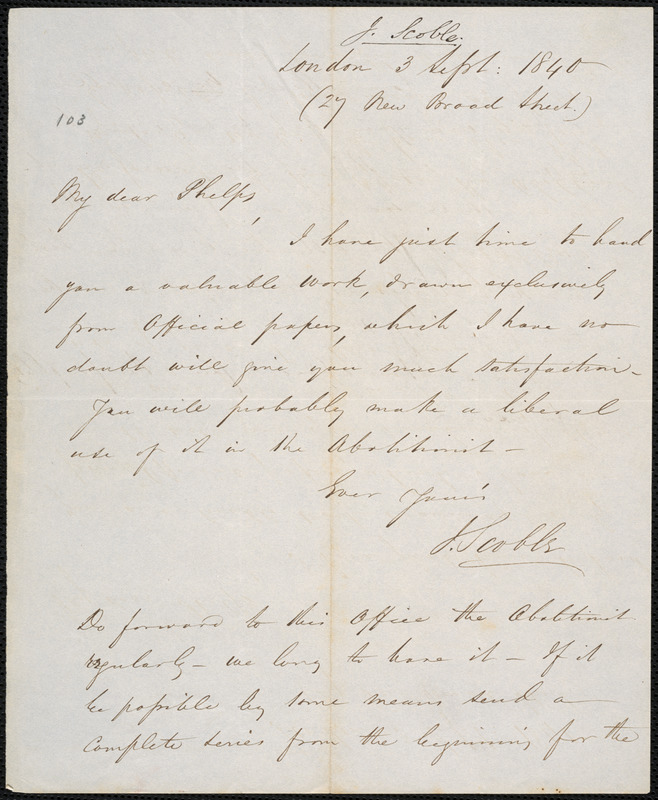 J. Scoble.
London 3 Sept: 1840
(27 New Broad Street.)
103
My dear Phelps,
I have just time to hand
you a valuable work, drawn exclusively
from Official papers, which I have no
doubt will give you much satisfaction -
You will probably make a liberal
use of it in the Abolitionist -
Ever Yours
J. Scoble
Do forward to this Office the Abolitionist
regularly - we long to have it - If it
be possible by some means send a
complete series from the beginning for the